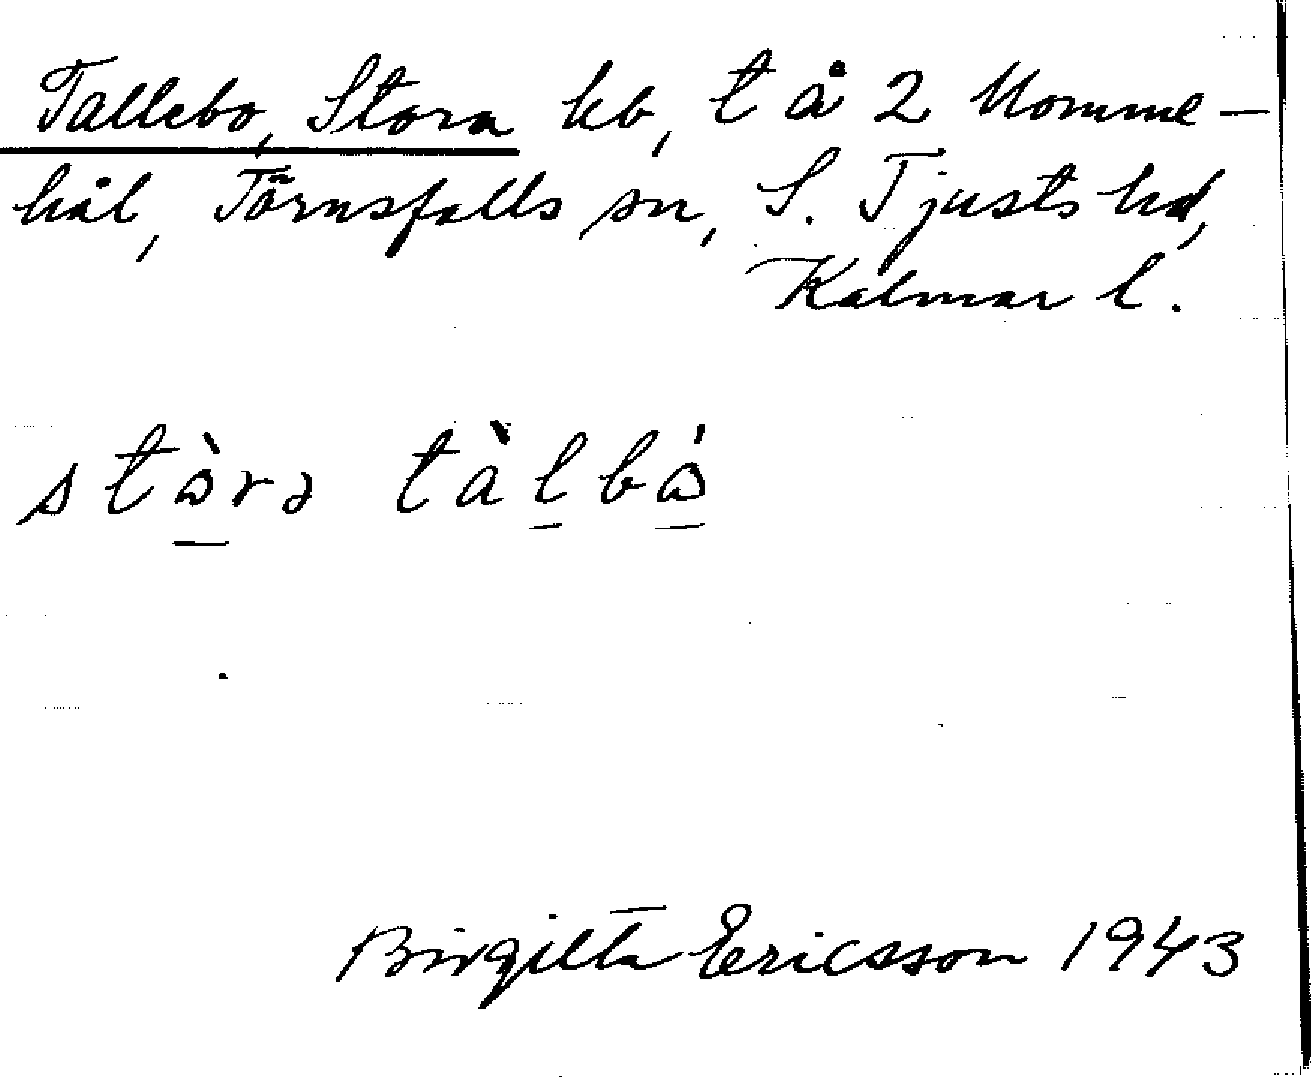 Tallebo, Stora hb, t å 2 Momme-
hål, Törnsfalls sn, S. Tjusts hd,
Kalmar l.
stòrə tàlbó
Birgitta Ericsson 1943